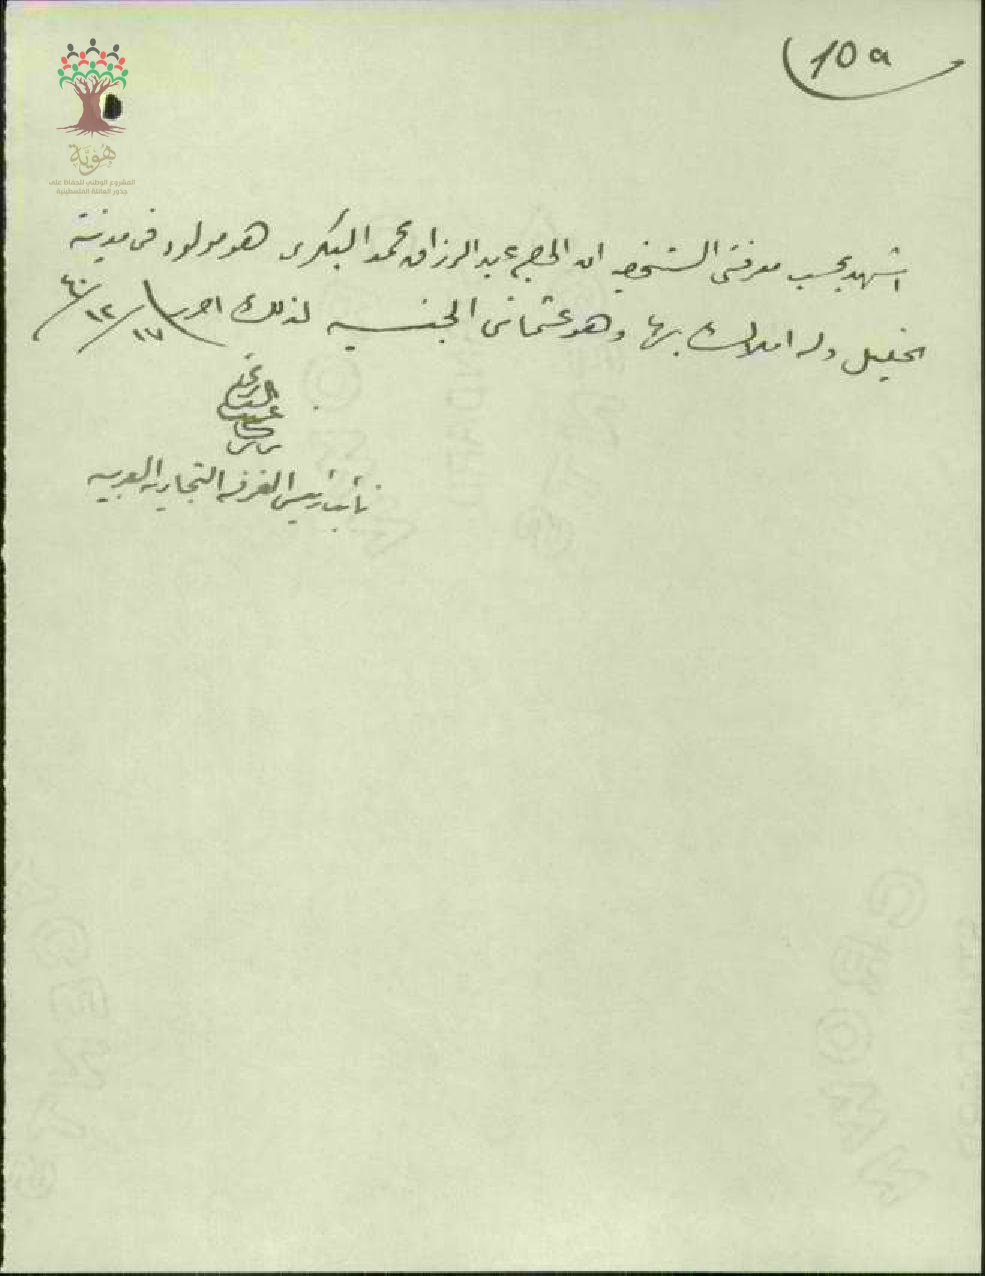 10a
هُوِيَّة
المشروع الوطني للحفاظ على
جذور العائلة الفلسطينية
اشهد بحسب معرفتي الشخصيه ان الحاج عبد الرزاق محمد البكري هو مولود في مدينة
الخليل وله املاك بها وهو عثماني الجنسيه لذلك احرر ١٧/١٢/٤٠
نائب رئيس الغرفه التجاريه العربيه
CROWN
STANDARD